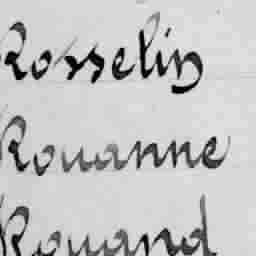 Rosselin
Rouanne
Rouand